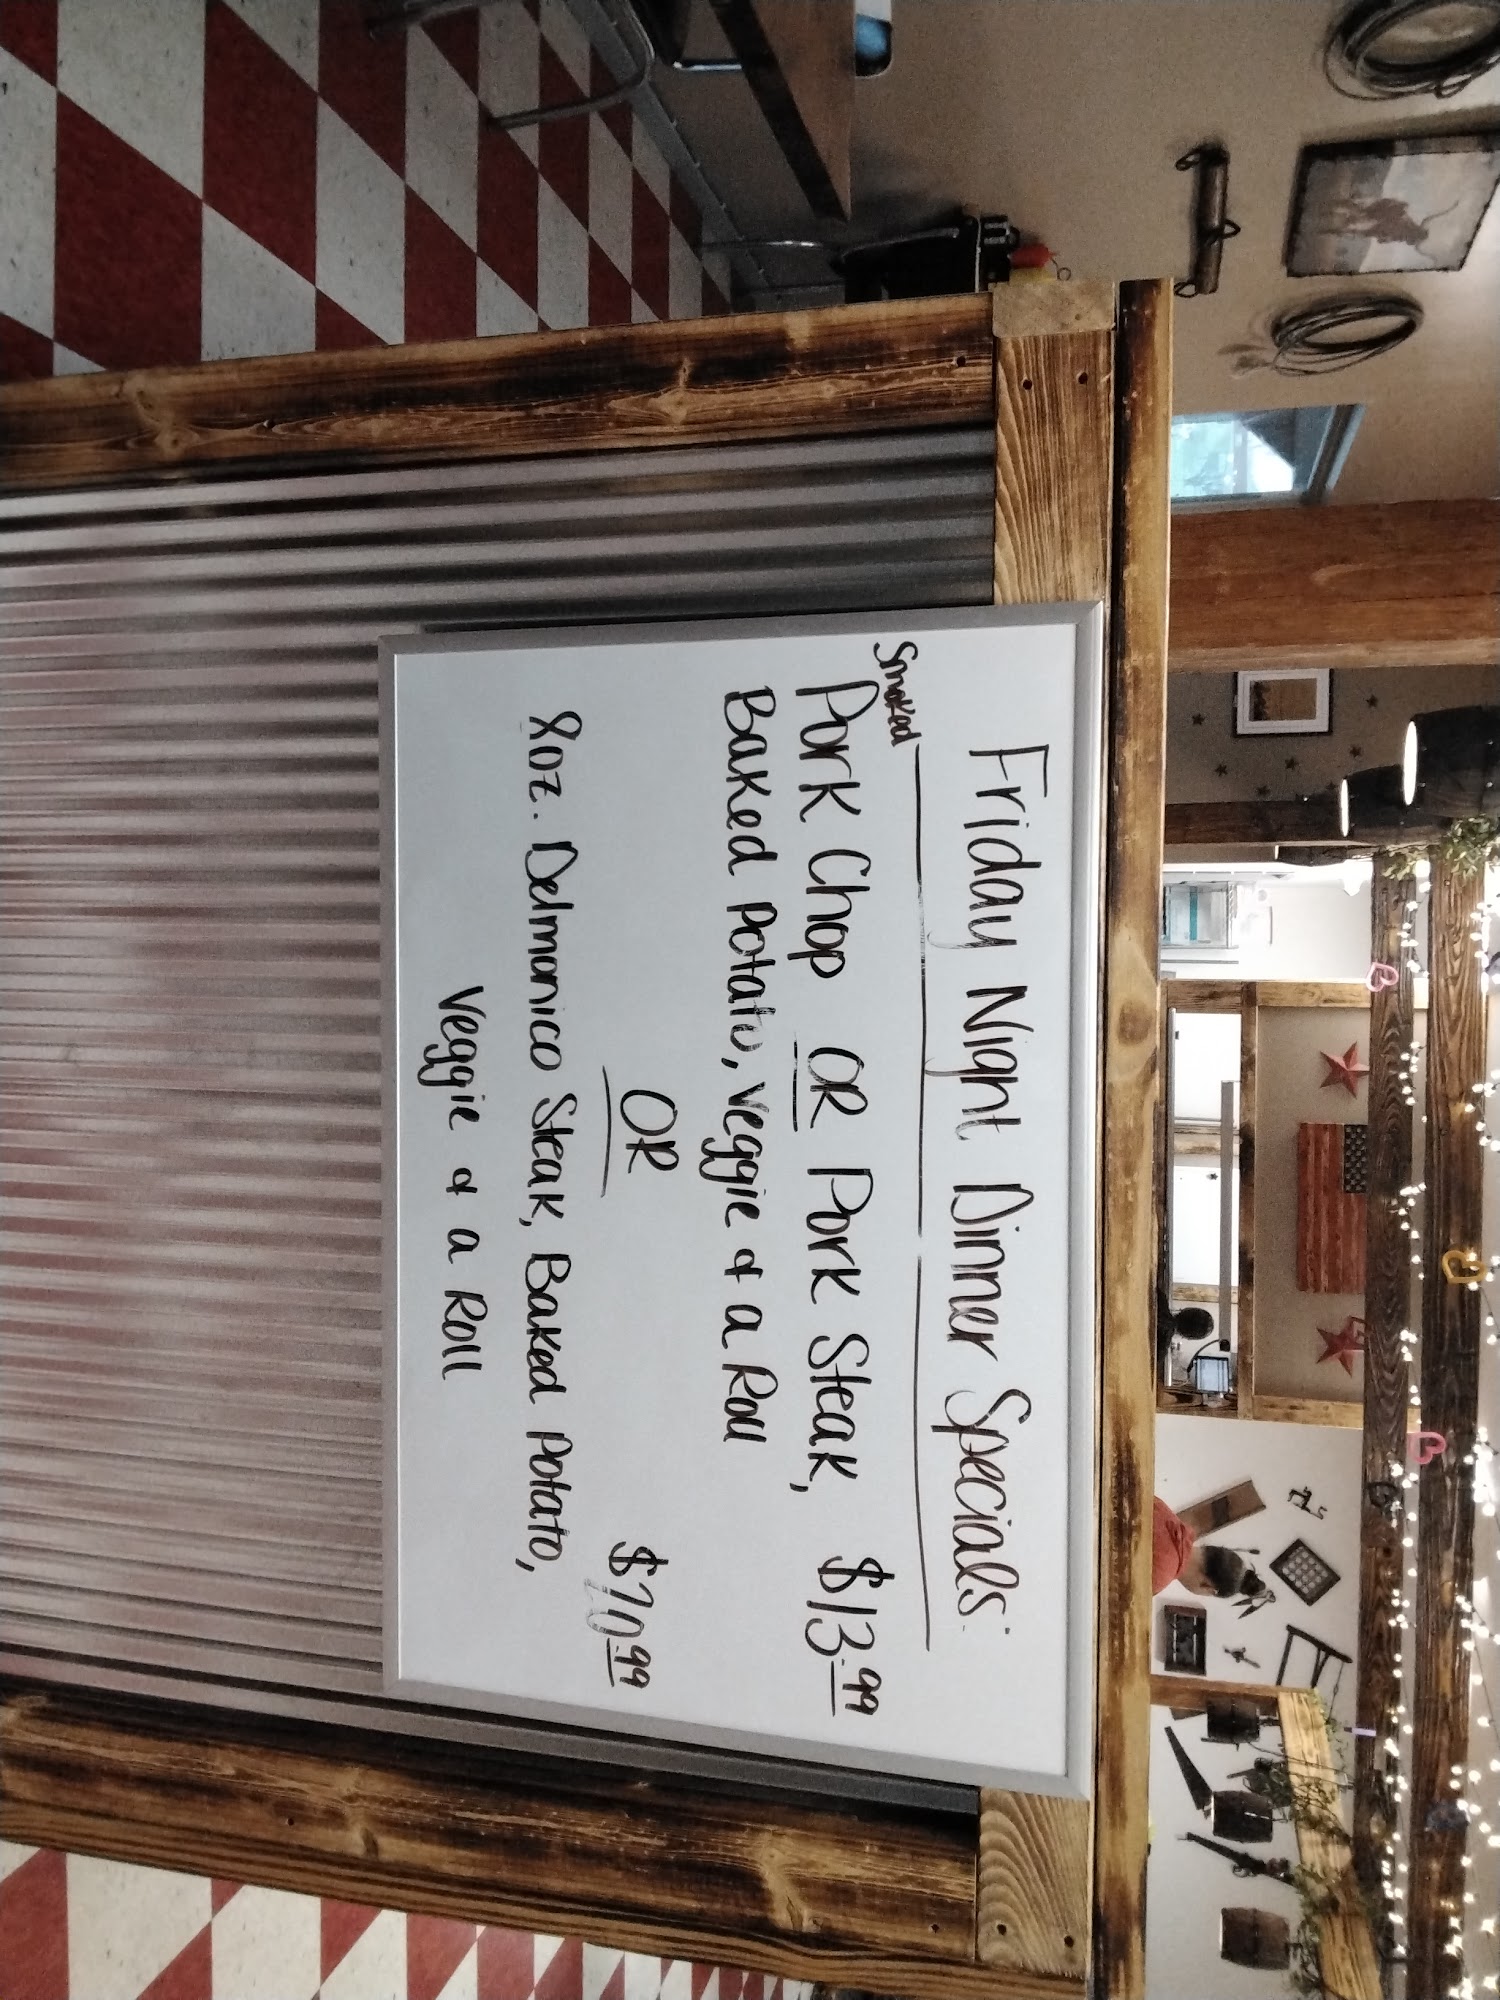 Friday Night Dinner Specials:
Smoked
Pork Chop OR Pork Steak, $13.99
Baked Potato, Veggie & a Roll
OR
$20.99
8oz. Delmonico Steak, Baked Potato,
Veggie & a Roll